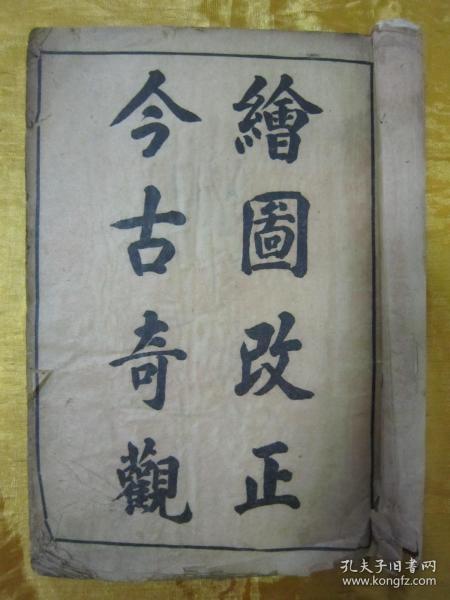 繪圖改正
今古奇觀
孔夫子旧书网
www.kongfz.com